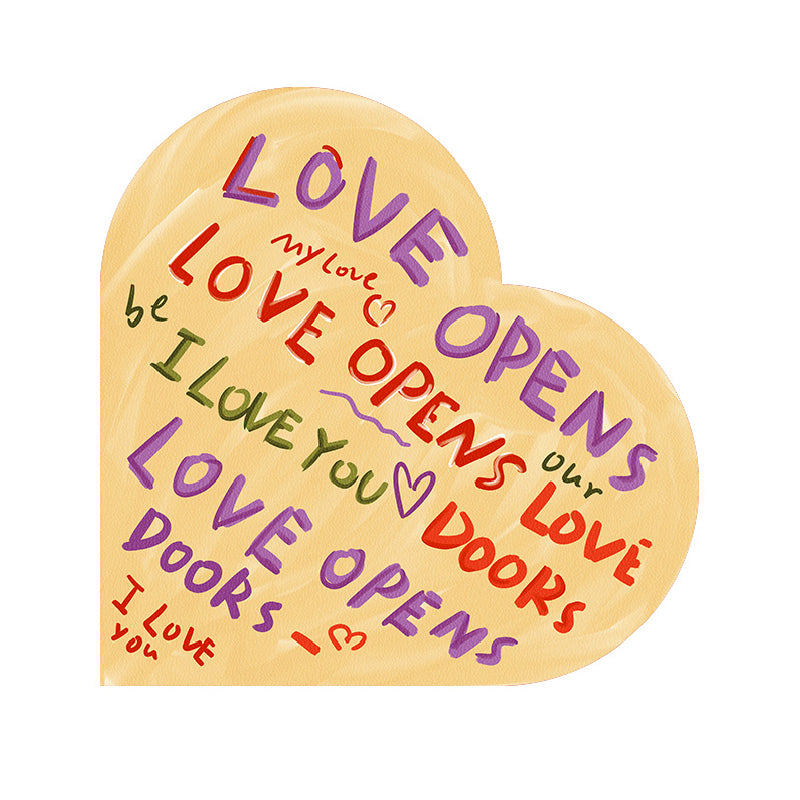 LOVE OPENS
MY LOVE
LOVE OPENS
our LOVE
DOORS
be
I LOVE YOU
LOVE OPENS
DOORS
I LOVE
you